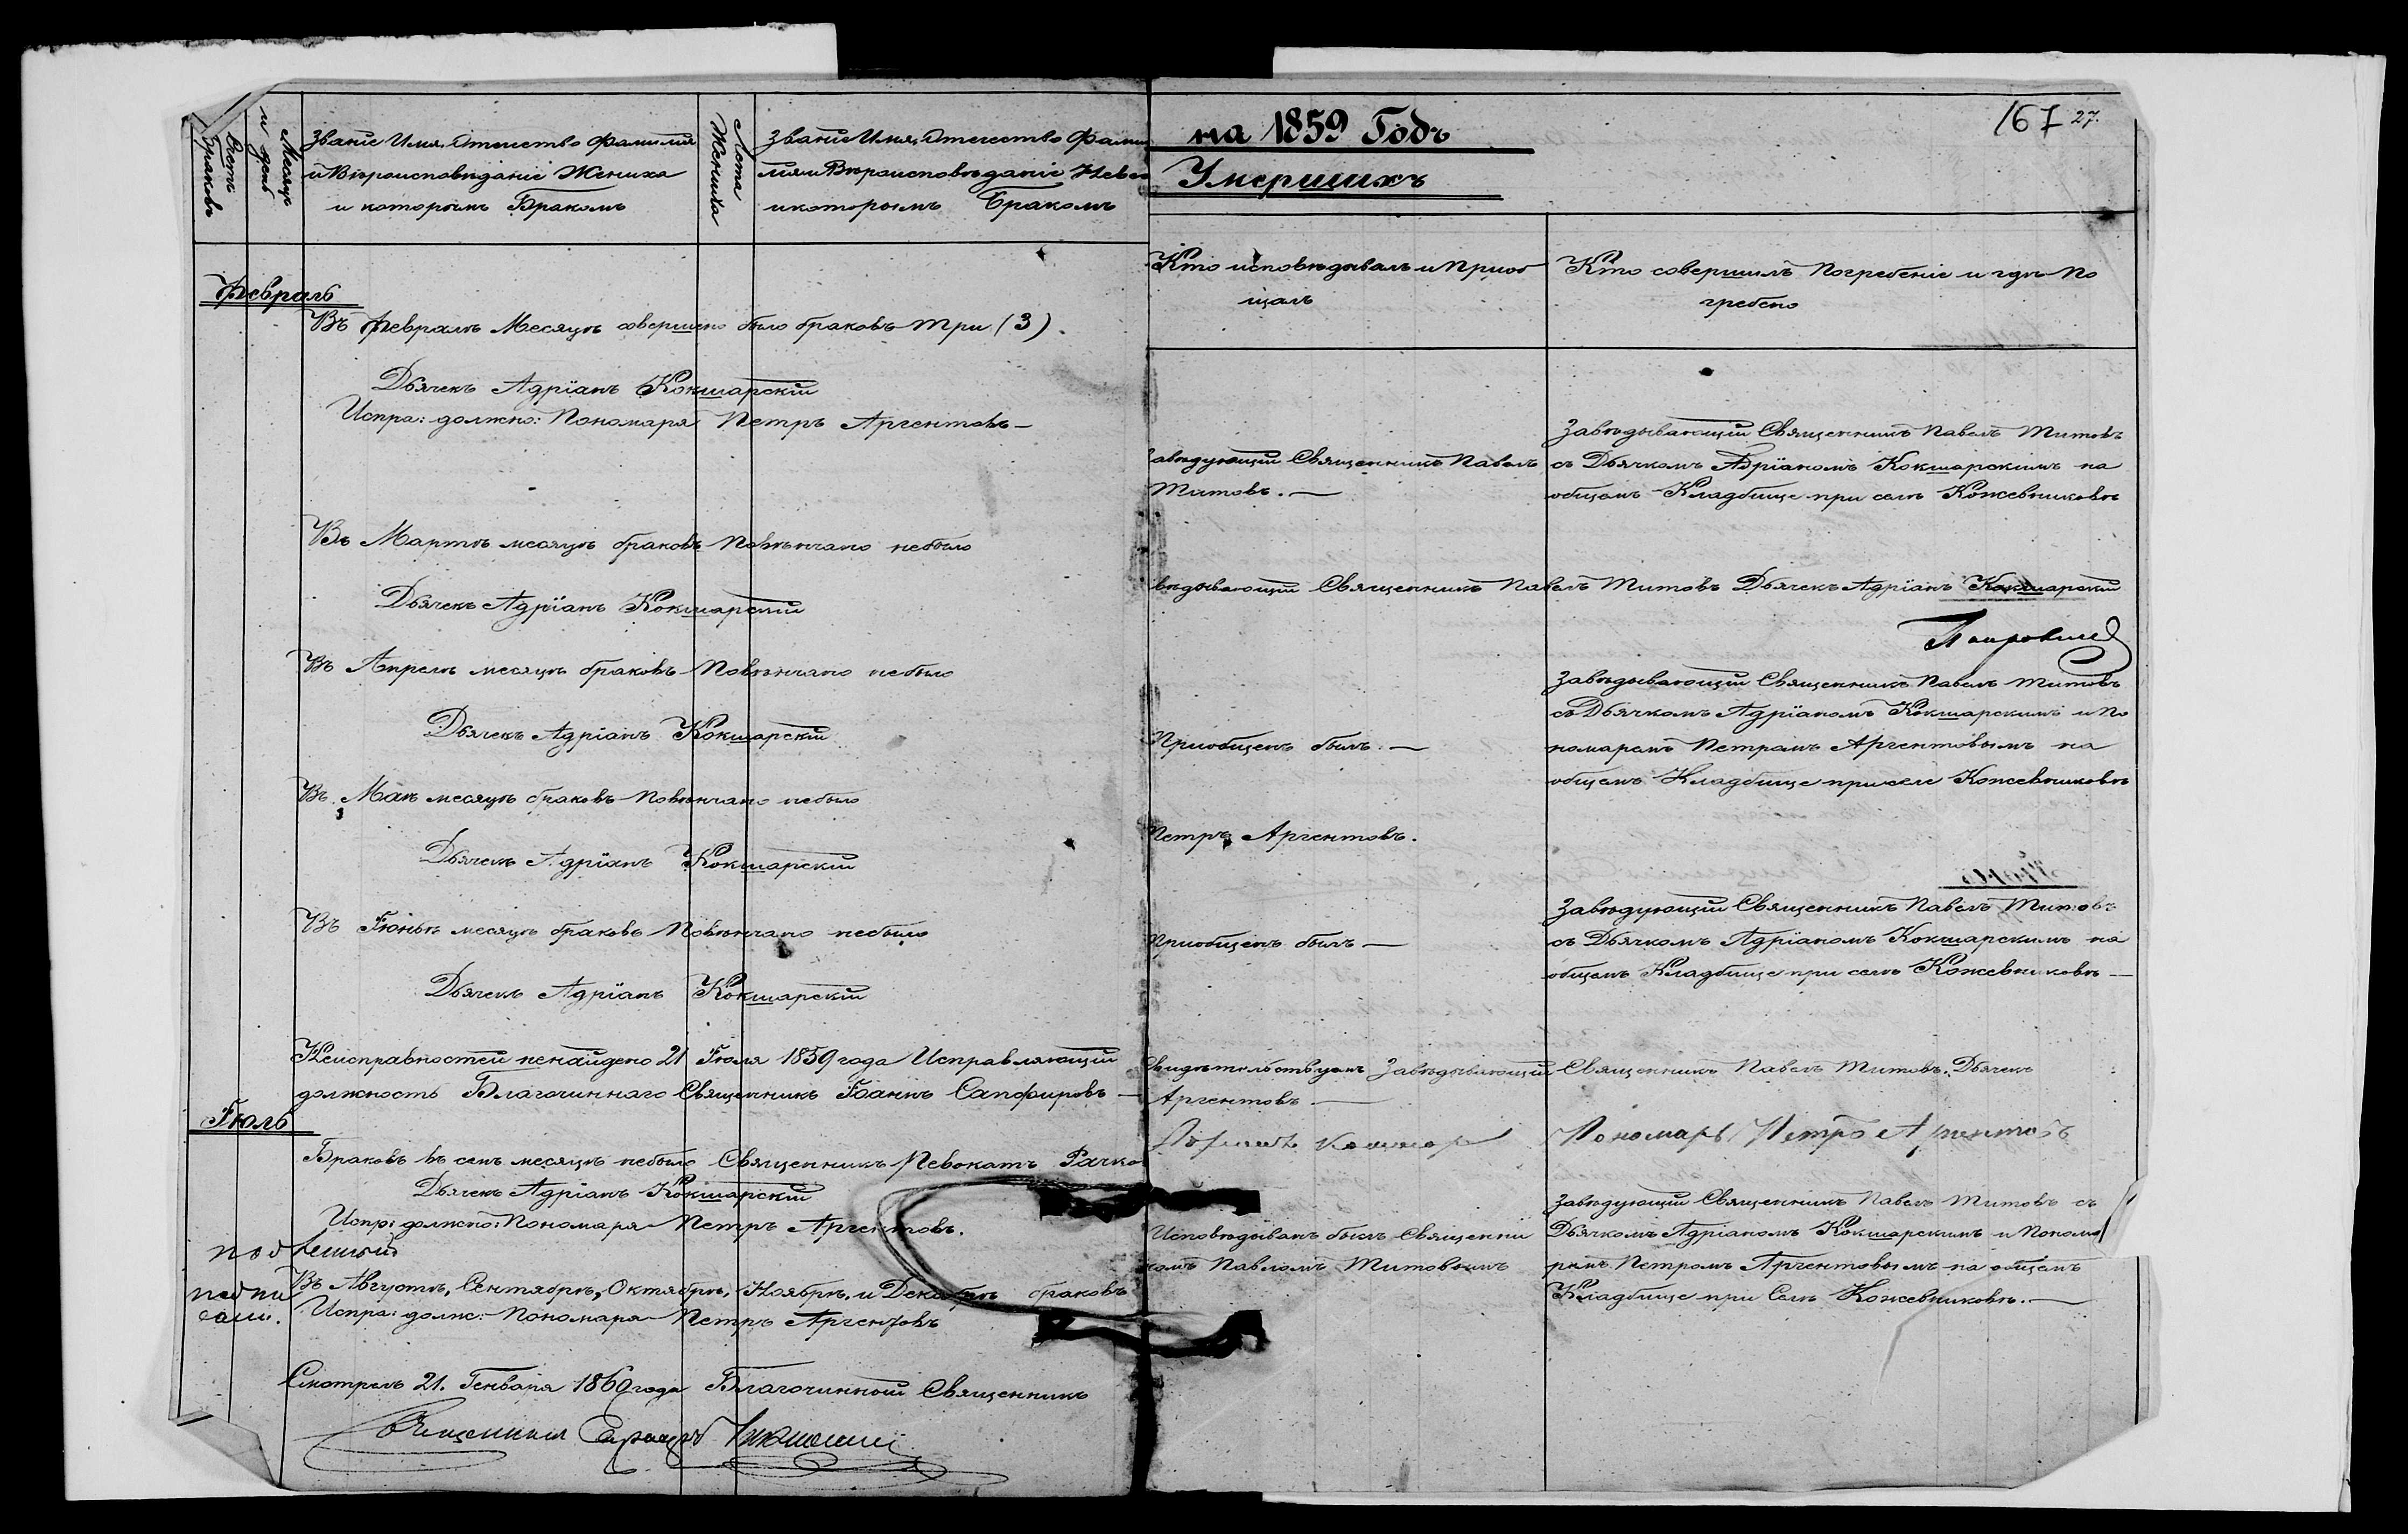 Счетъ Браковъ
Месяцъ и день
Званіе Имя, Отечество Фамилія
и Вѣроисповѣданіе Жениха
и которымъ Бракомъ
Лета Жениха
Званіе Имя, Отечество Фами
лія и Вѣроисповѣданіе Невес
и которымъ Бракомъ
Февраль
Въ Февралѣ Месяцѣ совершено было браковъ три (3).
Дьячекъ Адріанъ Кокшарскій
Испра: должно: Пономаря Петръ Аргентовъ
Въ Мартѣ месяцѣ браковъ повѣнчано небыло
Дьячекъ Адріанъ Кокшарскій
Въ Апрелѣ месяцѣ браковъ повѣнчано небыло
Дьячекъ Адріанъ Кокшарскій
Въ Маѣ месяцѣ браковъ повѣнчано небыло
Дьячекъ Адріанъ Кокшарскій
Въ Іюнѣ месяцѣ браковъ повѣнчано небыло
Дьячекъ Адріанъ Кокшарскій
Неисправностей ненайдено 21 Іюля 1859 года Исправляющій
должность Благочиннаго Священникъ Іоаннъ Сапфировъ
Іюль
Браковъ въ семъ месяцѣ небыло Священникъ
Дьячекъ Адріанъ Кокшарскій
Испр: должно: Пономаря Петръ Аргентовъ.
Въ Августѣ, Сентябрѣ, Октябрѣ, Ноябрѣ, и Декабрѣ браковъ
Испра: долж: Пономаря Петръ Аргентовъ
Смотрелъ 21. Генваря 1860 года Благочинный Священникъ
Священникъ
167 27.
на 1859 Годъ
Умершихъ
Кто исповѣдывалъ и приоб
щалъ
Кто совершилъ погребеніе и гдѣ по
гребено
Завѣдывающій Священникъ Павелъ Титовъ
авѣдующій Священникъ Павелъ
съ Дьячкомъ Адріаномъ Кокшарскимъ на
Титовъ.
общемъ Кладбище при селѣ Кожевниковѣ
вѣдывающій Священникъ Павелъ Титовъ Дьячекъ Адріанъ Кокшарскій
Завѣдывающій Священникъ Павелъ Титовъ
съ Дьячкомъ Адріаномъ Кокшарскимъ и По
Приобщенъ былъ.
номаремъ Петромъ Аргентовымъ на
общемъ Кладбище при селе Кожевниковѣ
Петръ Аргентовъ.
Завѣдующій Священникъ Павелъ Титовъ
Приобщенъ былъ
съ Дьячкомъ Адріаномъ Кокшарскимъ на
общемъ Кладбище при селѣ Кожевниковѣ
видѣтельствуемъ Завѣдывающій Священникъ Павелъ Титовъ. Дьячекъ
Аргентовъ
Пономарь Петръ Аргентовъ
Завѣдующій Священникъ Павелъ Титовъ съ
Исповѣдыванъ былъ Священни
Дьячкомъ Адріаномъ Кокшарскимъ и Понома
комъ Павломъ Титовымъ
ремъ Петромъ Аргентовымъ на общемъ
Кладбище при Селѣ Кожевниковѣ.